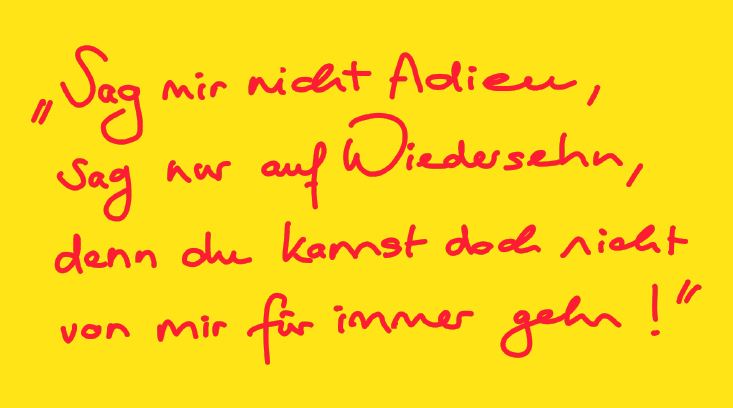 „Sag mir nicht Adieu,
sag nur auf Wiedersehn,
denn du kannst doch nicht
von mir für immer gehn!“